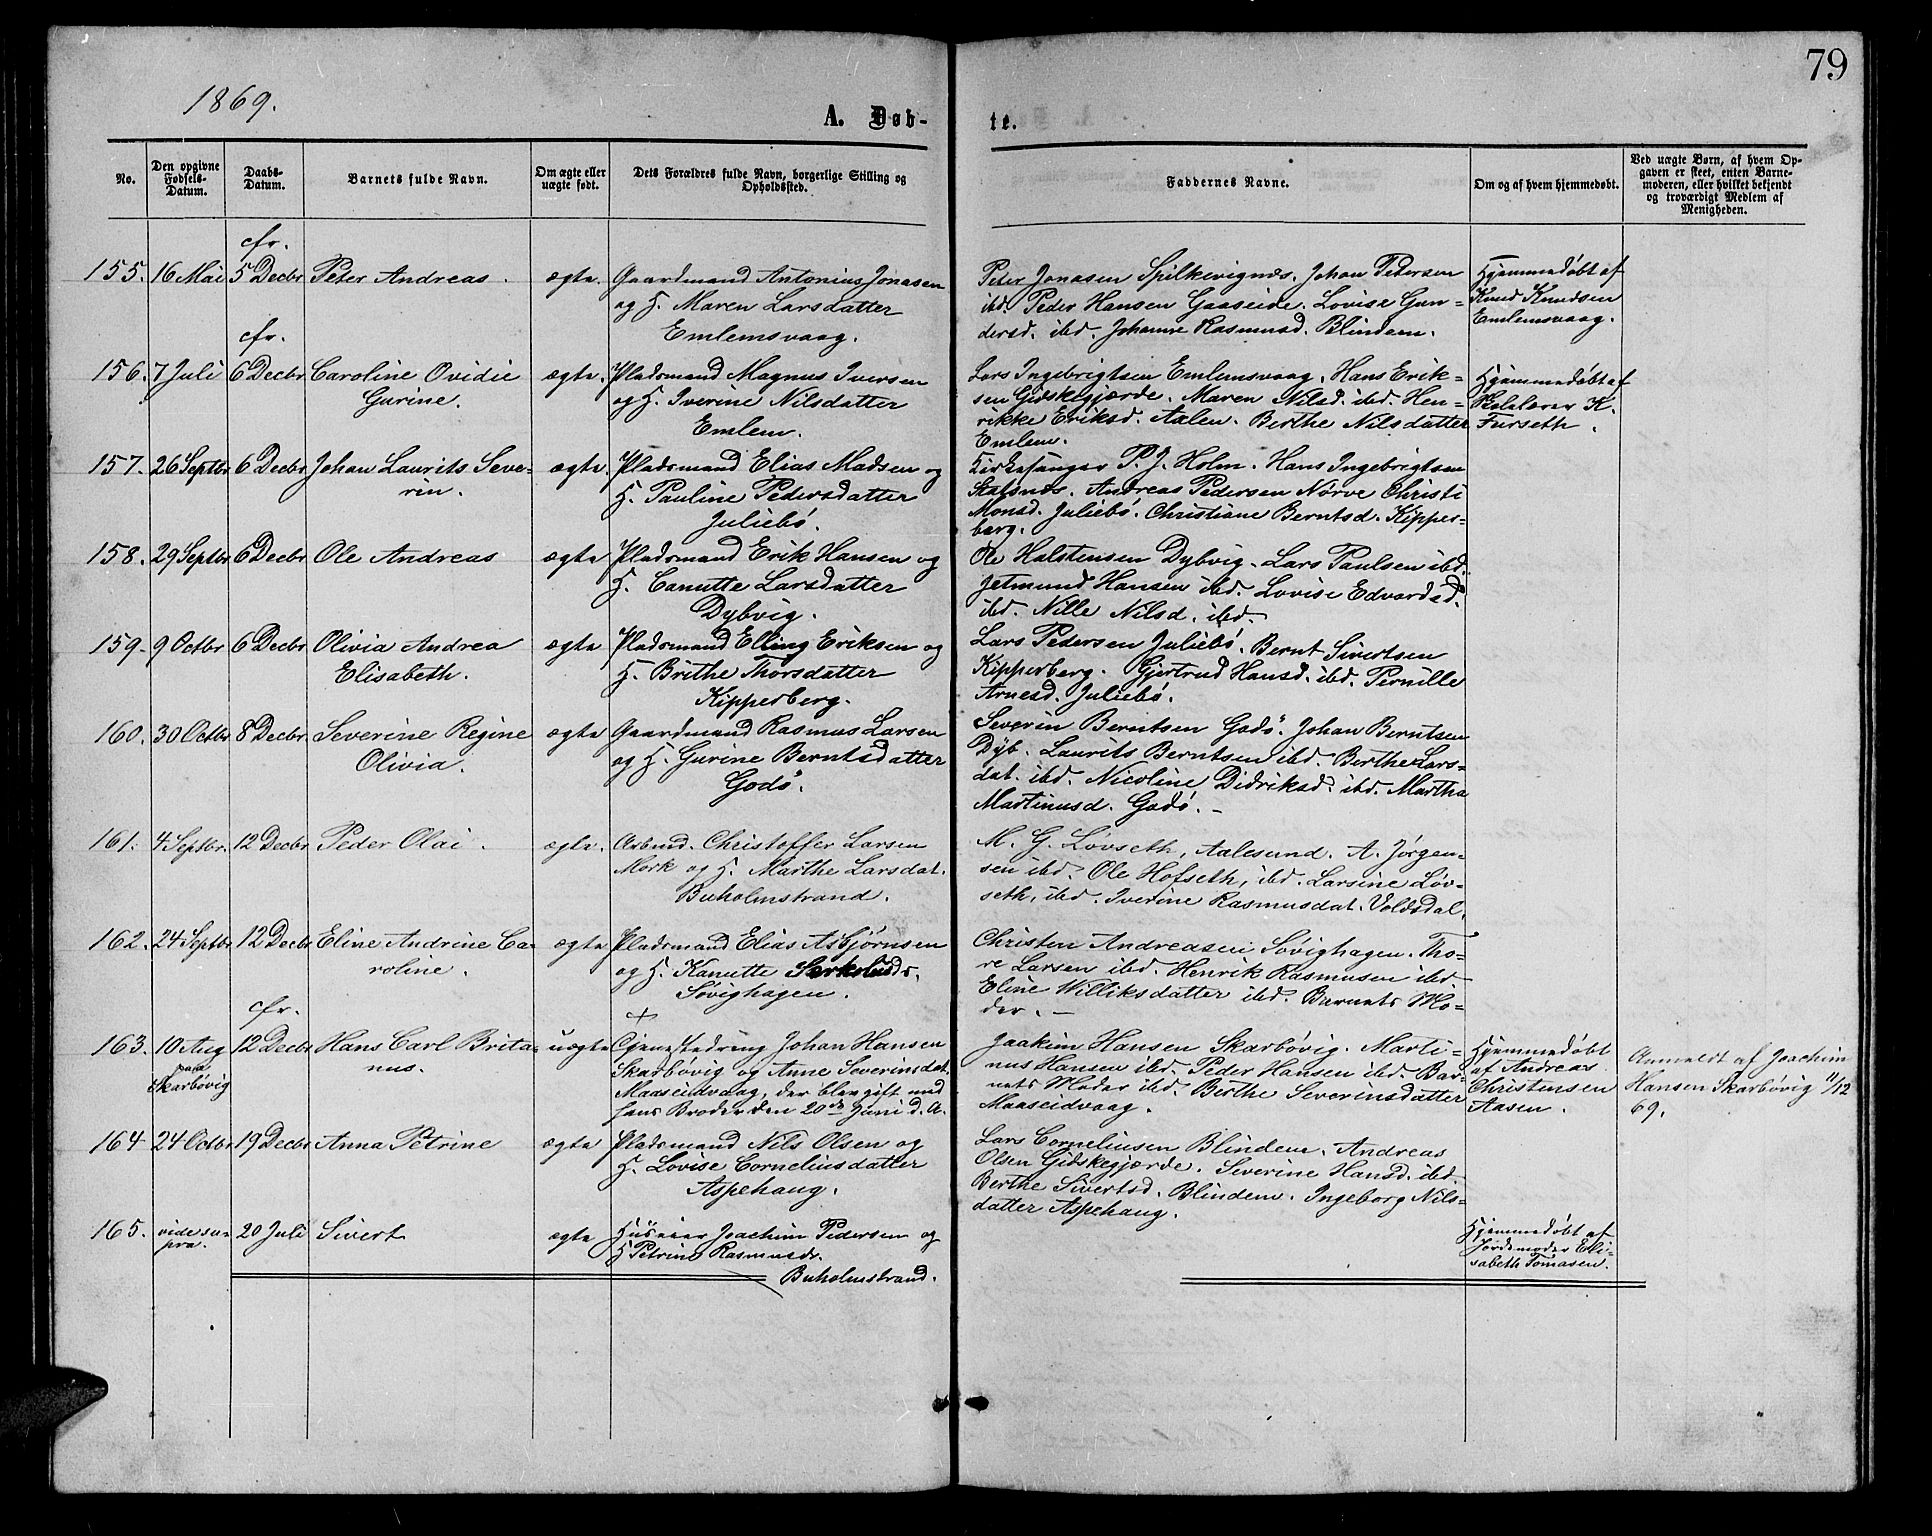 79
1869.
A. Døb-
te.
No.
Den opgivne Fødsels-Datum.
Daabs-Datum.
Barnets fulde Navn.
Om ægte eller uægte født.
Dets Forældres fulde Navn, borgerlige Stilling og Opholdssted.
Faddernes Navne.
Om og af hvem hjemmedøbt.
Ved uægte Børn, af hvem Op-
gaven er skeet, enten Barne-
moderen, eller hvilket bekjendt
og troværdigt Medlem af
Menigheden.
cfr.
155. 16 Mai 5 Decbr Peter Andreas. ægte. Gaardmand Antonius Jonasen
og H. Maren Larsdatter
Emlemsvaag.
Peter Jonasen Spilkevignæs. Johan Pedersen
ibd. Peder Hansen Gaaseide. Lovise Gun-
dersd. ibd. Johanne Rasmusd. Blindem.
Hjemmedøbt af
Knud Knudsen
Emlemsvaag.
cfr.
156. 7 Juli 6 Decbr Caroline Ovidie
Gurine.
ægte. Pladsmand Magnus Iversen
og H. Iverine Nilsdatter
Emlem.
Lars Ingebrigtsen Emlemsvaag. Hans Erik-
sen Gidskegjærde. Maren Nilsd. ibd. Hen-
rikke Eriksd. Aalen. Berthe Nilsdatter
Emlem.
Hjemmedøbt af
Skolelærer K.
Furseth.
157. 26 Septbr 6 Decbr Johan Laurits Seve-
rin.
ægte. Pladsmand Elias Madsen og
H. Pauline Pedersdatter
Juliebö.
Kirkesanger P. J. Holm. Hans Ingebrigtsen
Slatsnæs. Andreas Pedersen Nörve Christi
Monsd. Juliebö. Christiane Berntsd. Kipper-
berg.
158. 29 Septbr 6 Decbr Ole Andreas ægte Pladsmand Erik Hansen og
H. Canutte Larsdatter
Dybvig.
Ole Halstensen Dybvig. Lars Paulsen ibd.
Jetmund Hansen ibd. Lovise Edvardsd.
ibd. Nille Nilsd. ibd.
159. 9 Octbr 6 Decbr Olivia Andrea
Elisabeth.
ægte Pladsmand Elling Eriksen og
H. Brithe Thorsdatter
Kipperberg.
Lars Pedersen Juliebö. Bernt Sivertsen
Kipperberg. Gjertrud Hansd. ibd. Pernille
Arnesd. Juliebö.
160. 30 Octbr 8 Decbr Severine Regine
Olivia.
ægte Gaardmand Rasmus Larsen
og H. Gurine Berntsdatter
Godö.
Severin Berntsen Godö. Johan Berntsen
Dyb. Laurits Berntsen ibd. Berthe Lars-
dat. ibd. Nicoline Didriksd. ibd. Martha
Martinusd. Godö. –
161. 4 Septbr. 12 Decbr Peder Olai. ægte. Arbmd. Christoffer Larsen
Mork og H. Marthe Larsdat.
Buholmstrand.
M. G. Lövseth, Aalesund. A. Jörgen-
sen ibd. Ole Hofseth, ibd. Larsine Löv-
seth, ibd. Iverine Rasmusdat. Voldsdal.
162. 24 Septbr 12 Decbr Eline Andrine Ca-
roline.
ægte Pladsmand Elias Asbjörnsen
og H. Kanutte
Sövighagen.
Christen Andreasen Sövighagen. Tho-
re Larsen ibd. Henrik Rasmusen ibd.
Eline Williksdatter ibd. Barnets Mo-
der. –
cfr.
163. 10 Aug
paa
Skarbövig
12 Decbr Hans Carl Brita-
nus.
uægte +
Tjenestedreng Johan Hansen
Skarbövig og Anne Severinsdat.
Maaseidvaag, der blev gift med
hans Broder den 20de Juni d. A.
Joakim Hansen Skarbövig. Marti-
nus Hansen ibd. Peder Hansen ibd. Bar-
nets Moder ibd. Birthe Severinsdatter
Maaseidvaag.
Hjemmedöbt
af Andreas
Christensen
Aasen.
Anmeldt af Joachim
Hansen Skarbövig 11/12
69.
164 24 Octbr 19 Decbr Anna Petrine ægte Pladsmand Nils Olsen og
H. Lovise Corneliusdatter
Aspehaug.
Lars Corneliusen Blindem. Andreas
Olsen Gidskegjærde. Severine Hansd. ibd.
Berthe Sivertsd. Blindem. Ingeborg Nils-
datter Aspehaug.
165. vide su-
pra.
20 Juli Sivert ægte Huseier Joachim Pedersen og
H Petrine Rasmusdr.
Buholmstrand.
Hjemmedöbt af
Jordemoder Eli-
sabeth Tomasen.